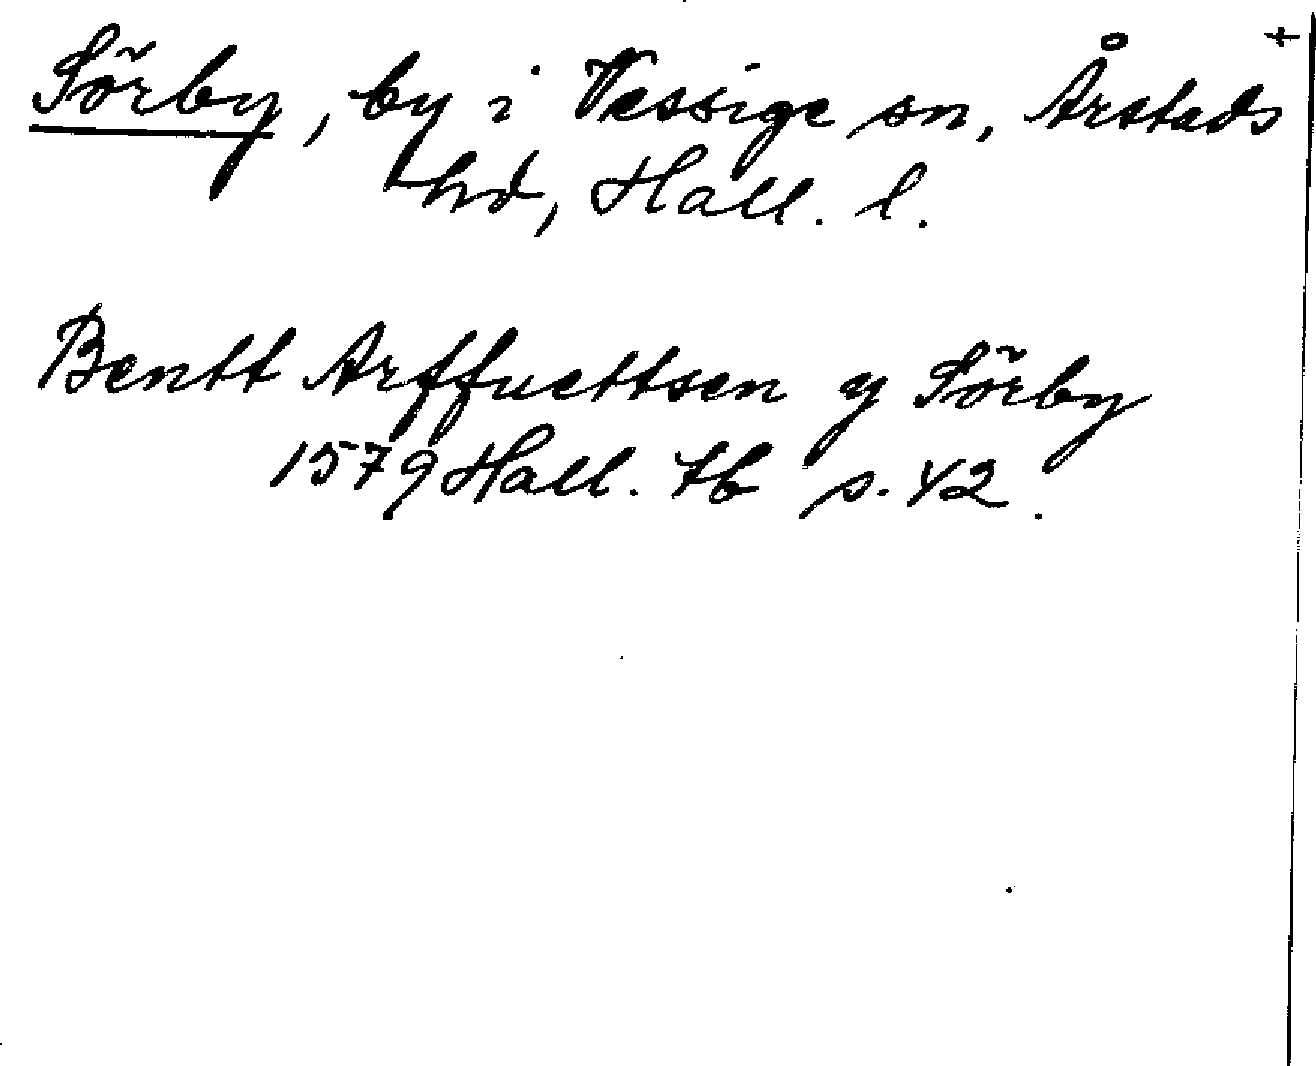 Sörby, by i Vessige sn, Årstads +
hd, Hall. l.
Bentt Arffuettsen y Sörby
1579 Hall. tb s. 42.